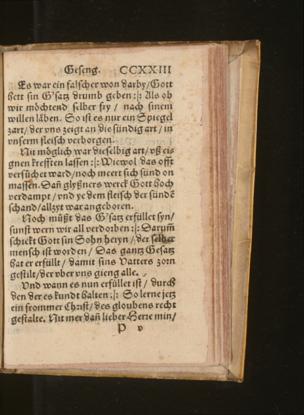 Geseng. CCXXIII
Es war ein falscher won darby / Gott
hett sin G'satz drumb geben :|: Als ob
wir möchtend selber fry / nach sinem
willen läben. So ist es nur ein Spiegel
zart / der vns zeigt an die sündig art / in
vnserm fleisch verborgen.
Nit möglich war dieselbig art / vß eig
nen krefften lassen :|: Wiewol das offt
versůcht ward / noch meert sich sünd on
massen. Dañ glyßners werck Gott hoch
verdampt / vnd ye dem fleisch der sünde
schand / allzyt war angeboren.
Noch müßt das G'satz erfüllet syn /
sunst wern wir all verdorben :|: Darum̃
schickt Gott sin Sohn heryn / der selber
mensch ist worden / Das gantz Gesatz
hat er erfüllt / damit sins Vatters zorn
gestilt / der vber vns gieng alle.
Vnd wann es nun erfüllet ist / durch
den der es kundt halten :|: So lerne jetz
ein frommer Christ / des gloubens recht
gestalte. Nit mer dañ lieber Herre min /
P v